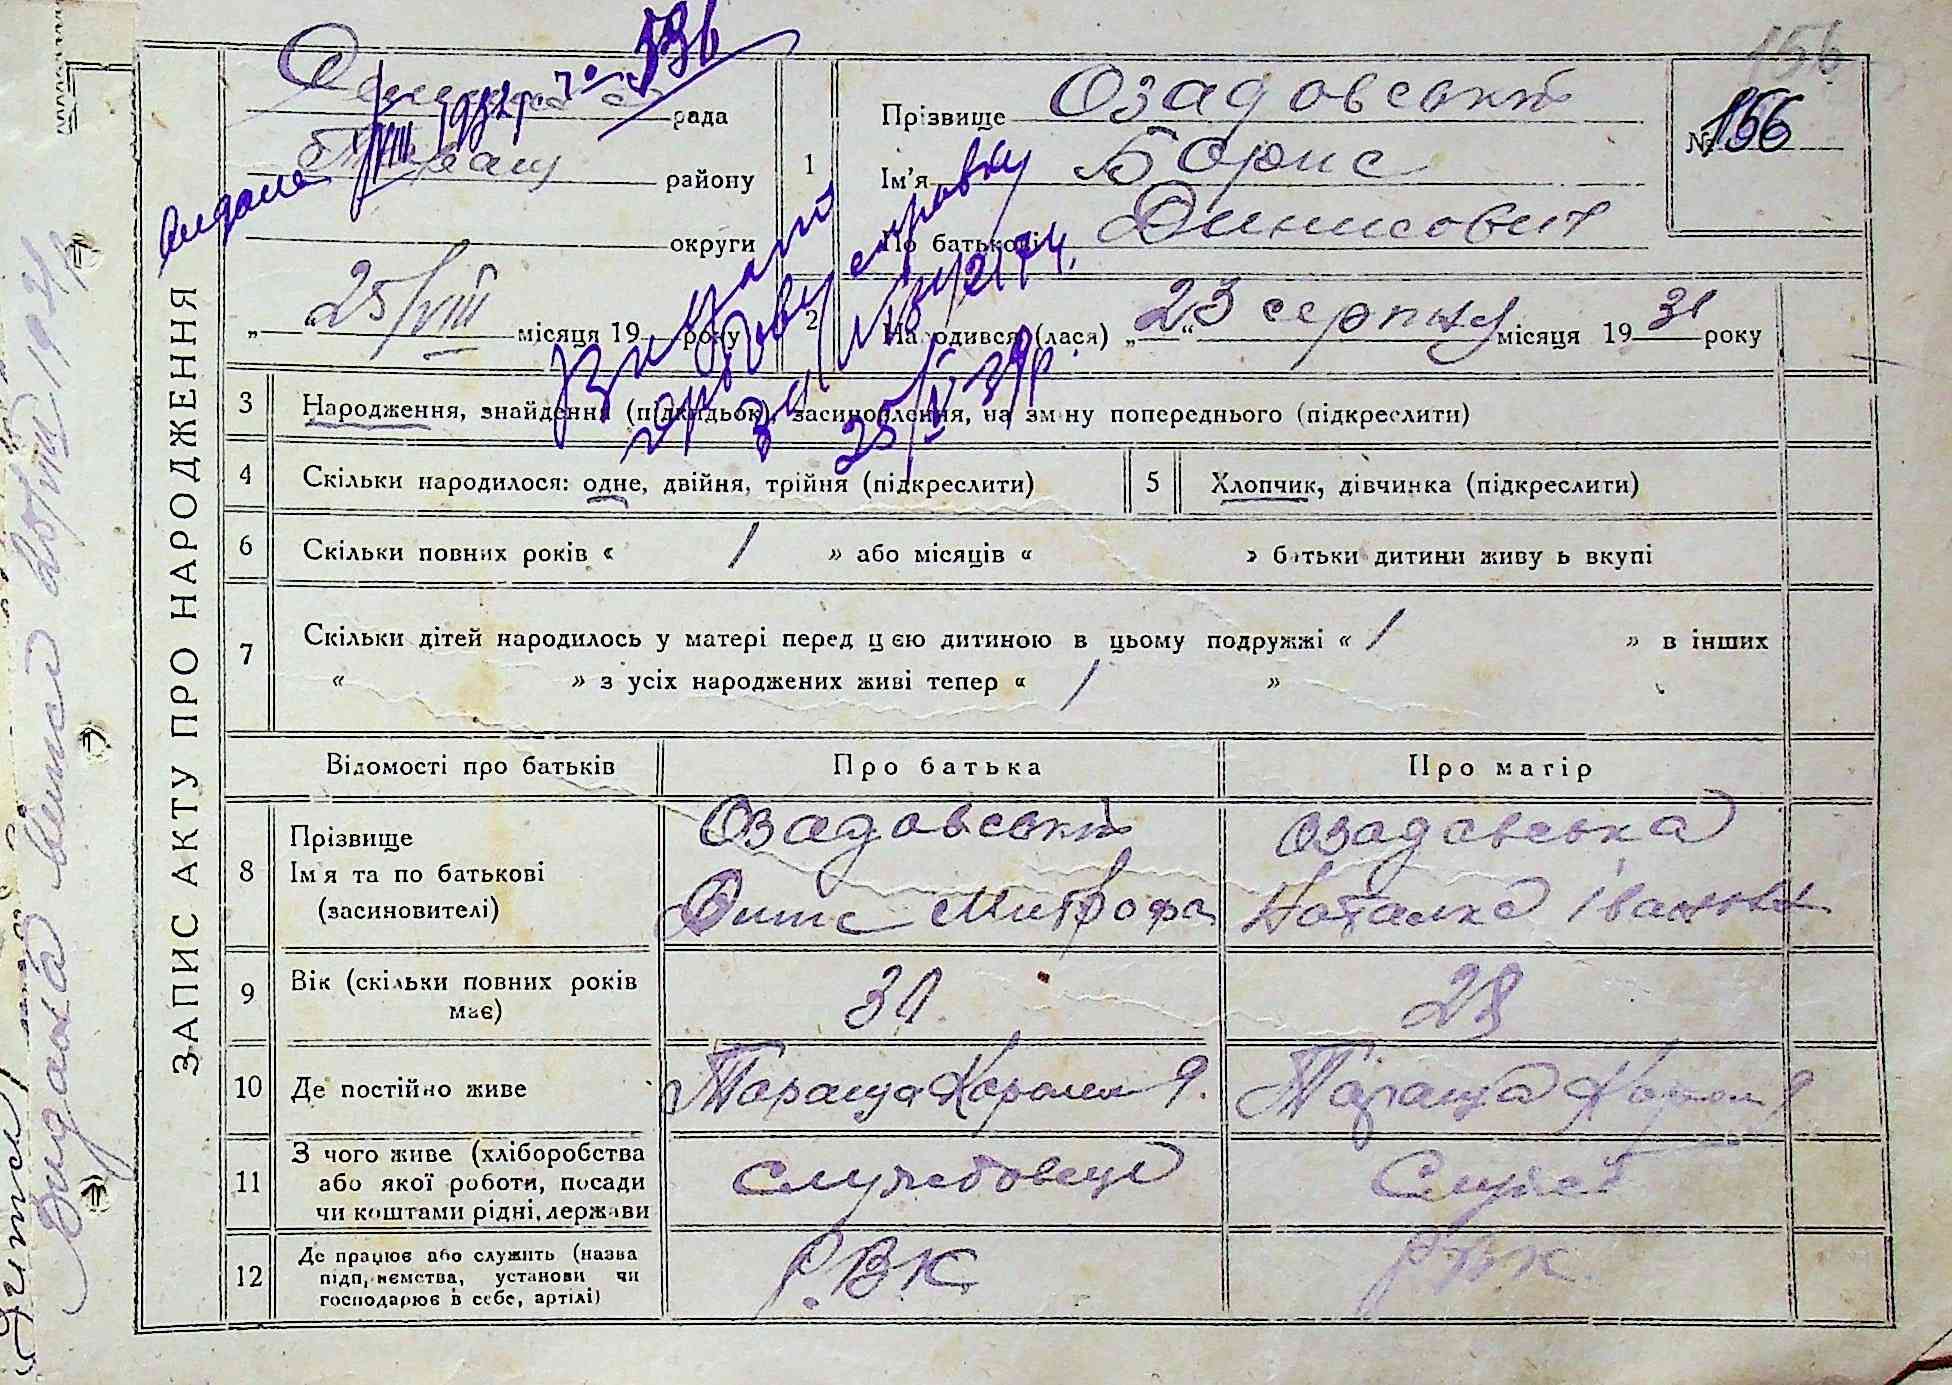 ЗАПИС АКТУ ПРО НАРОДЖЕННЯ
156
рада
району
округи
„ 25/VIII місяця 19 року
№ 156
1 Прізвище Озадовський
Ім'я Борис
По батькові Динисович
2 Народився (лася) „ 23 “ серпня місяця 19 31 року
видана VIII 1932р. 336
25/V 39р.
3 Народження, знайдення (підкидьок), засиновлення, на зміну попереднього (підкреслити)
4 Скільки народилося: одне, двійня, трійня (підкреслити)
5 Хлопчик, дівчинка (підкреслити)
6 Скільки повних років « 1 » або місяців « » батьки дитини живуть вкупі
7 Скільки дітей народилось у матері перед цією дитиною в цьому подружжі « 1 » в інших
« » з усіх народжених живі тепер « 1 »
Відомості про батьків Про батька Про матір
8 Прізвище
Ім'я та по батькові
(засиновителі)
Озадовський
Динис Митрофа
Озадовська
Наталка Івановн
9 Вік (скільки повних років має) 31 28
10 Де постійно живе Тараща Тараща
11 З чого живе (хліборобства
або якої роботи, посади
чи коштами рідні, держави
Служебовець
Служб
12 Де працює або служить (назва
підприємства, установи чи
господарює в себе, артілі)
Р.В.К.
Р.В.К.
Видана